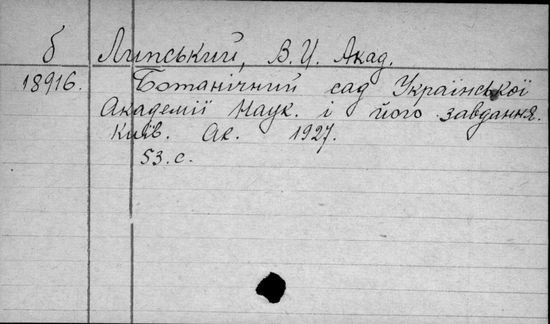 б Липський, В.И. Акад.
18916. Ботанічний сад Української
Академії Наук. і його завдання.
Київ. Ак. 1927.
53.с.